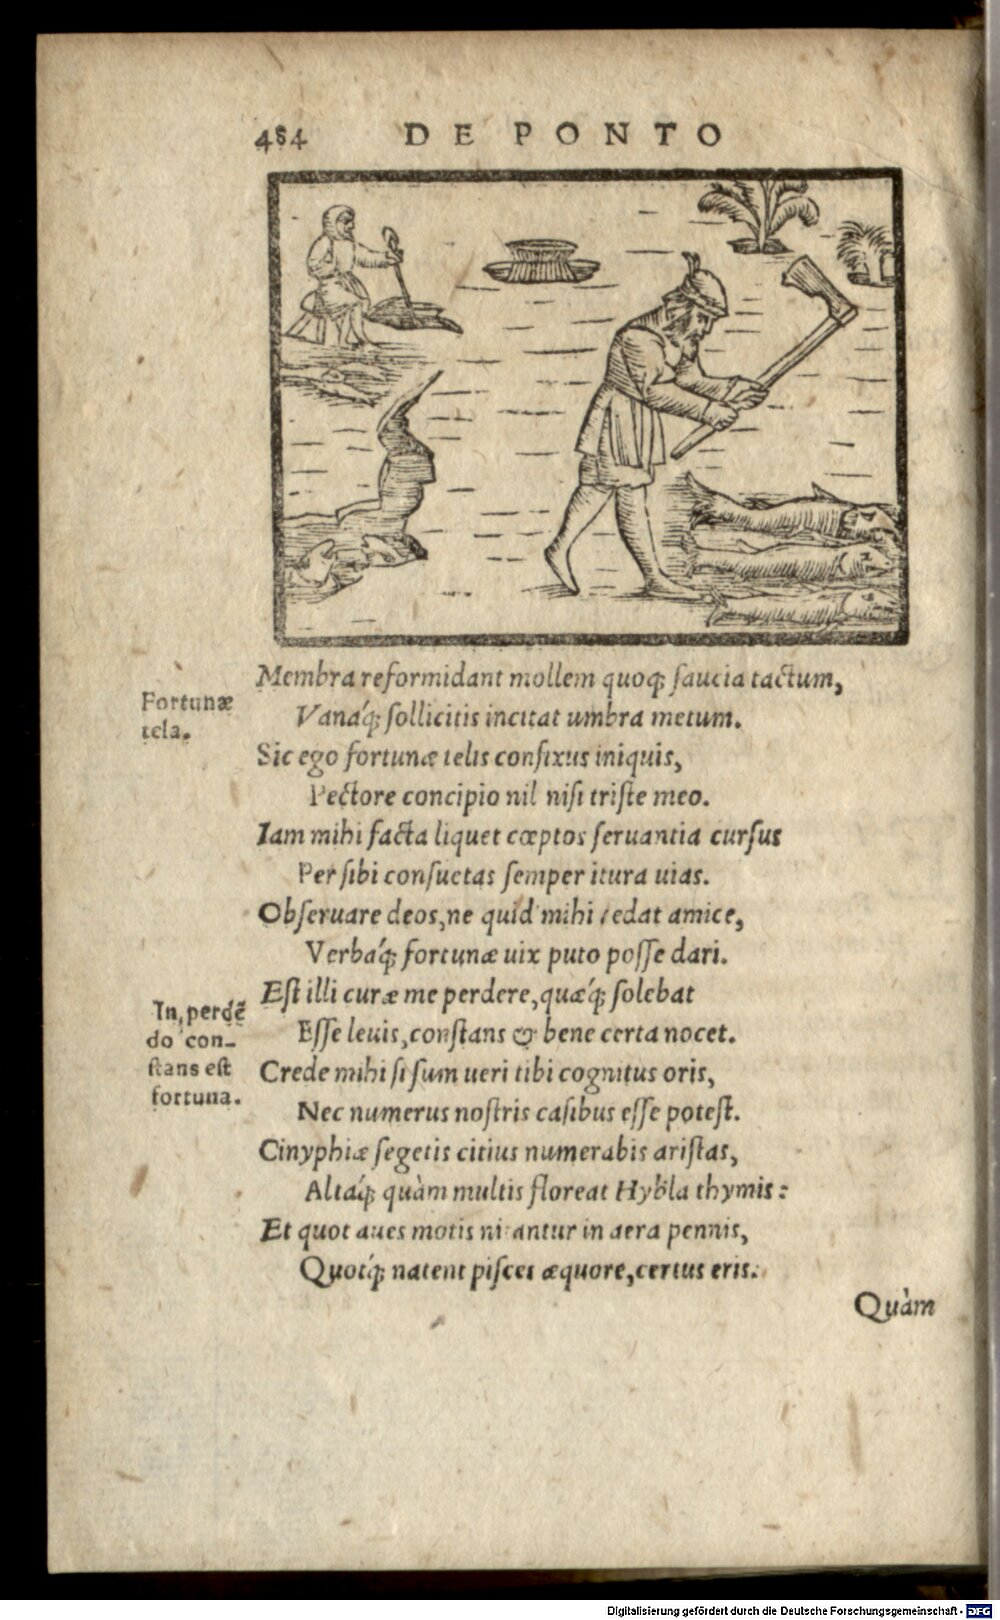 484 DE PONTO
Membra reformidant mollem quoq; saucia tactum,
Fortunæ
tela.
Vanáq; sollicitis incitat umbra metum.
Sic ego fortunæ telis confixus iniquis,
Pectore concipio nil nisi triste meo.
Iam mihi facta liquet cœptos seruantia cursus
Per sibi consuetas semper itura uias.
Obseruare deos, ne quid mihi cedat amice,
Verbáq; fortunæ uix puto posse dari.
Est illi curæ me perdere, quæq́; solebat
In perdē
do con-
stans est
fortuna.
Esse leuis, constans & bene certa nocet.
Crede mihi si sum ueri tibi cognitus oris,
Nec numerus nostris casibus esse potest.
Cinyphiæ segetis citius numerabis aristas,
Altáq; quàm multis floreat Hybla thymis:
Et quot aues motis nitantur in aera pennis,
Quotq́; natent pisces æquore, certus eris.
Quàm
Digitalisierung gefördert durch die Deutsche Forschungsgemeinschaft - DFG